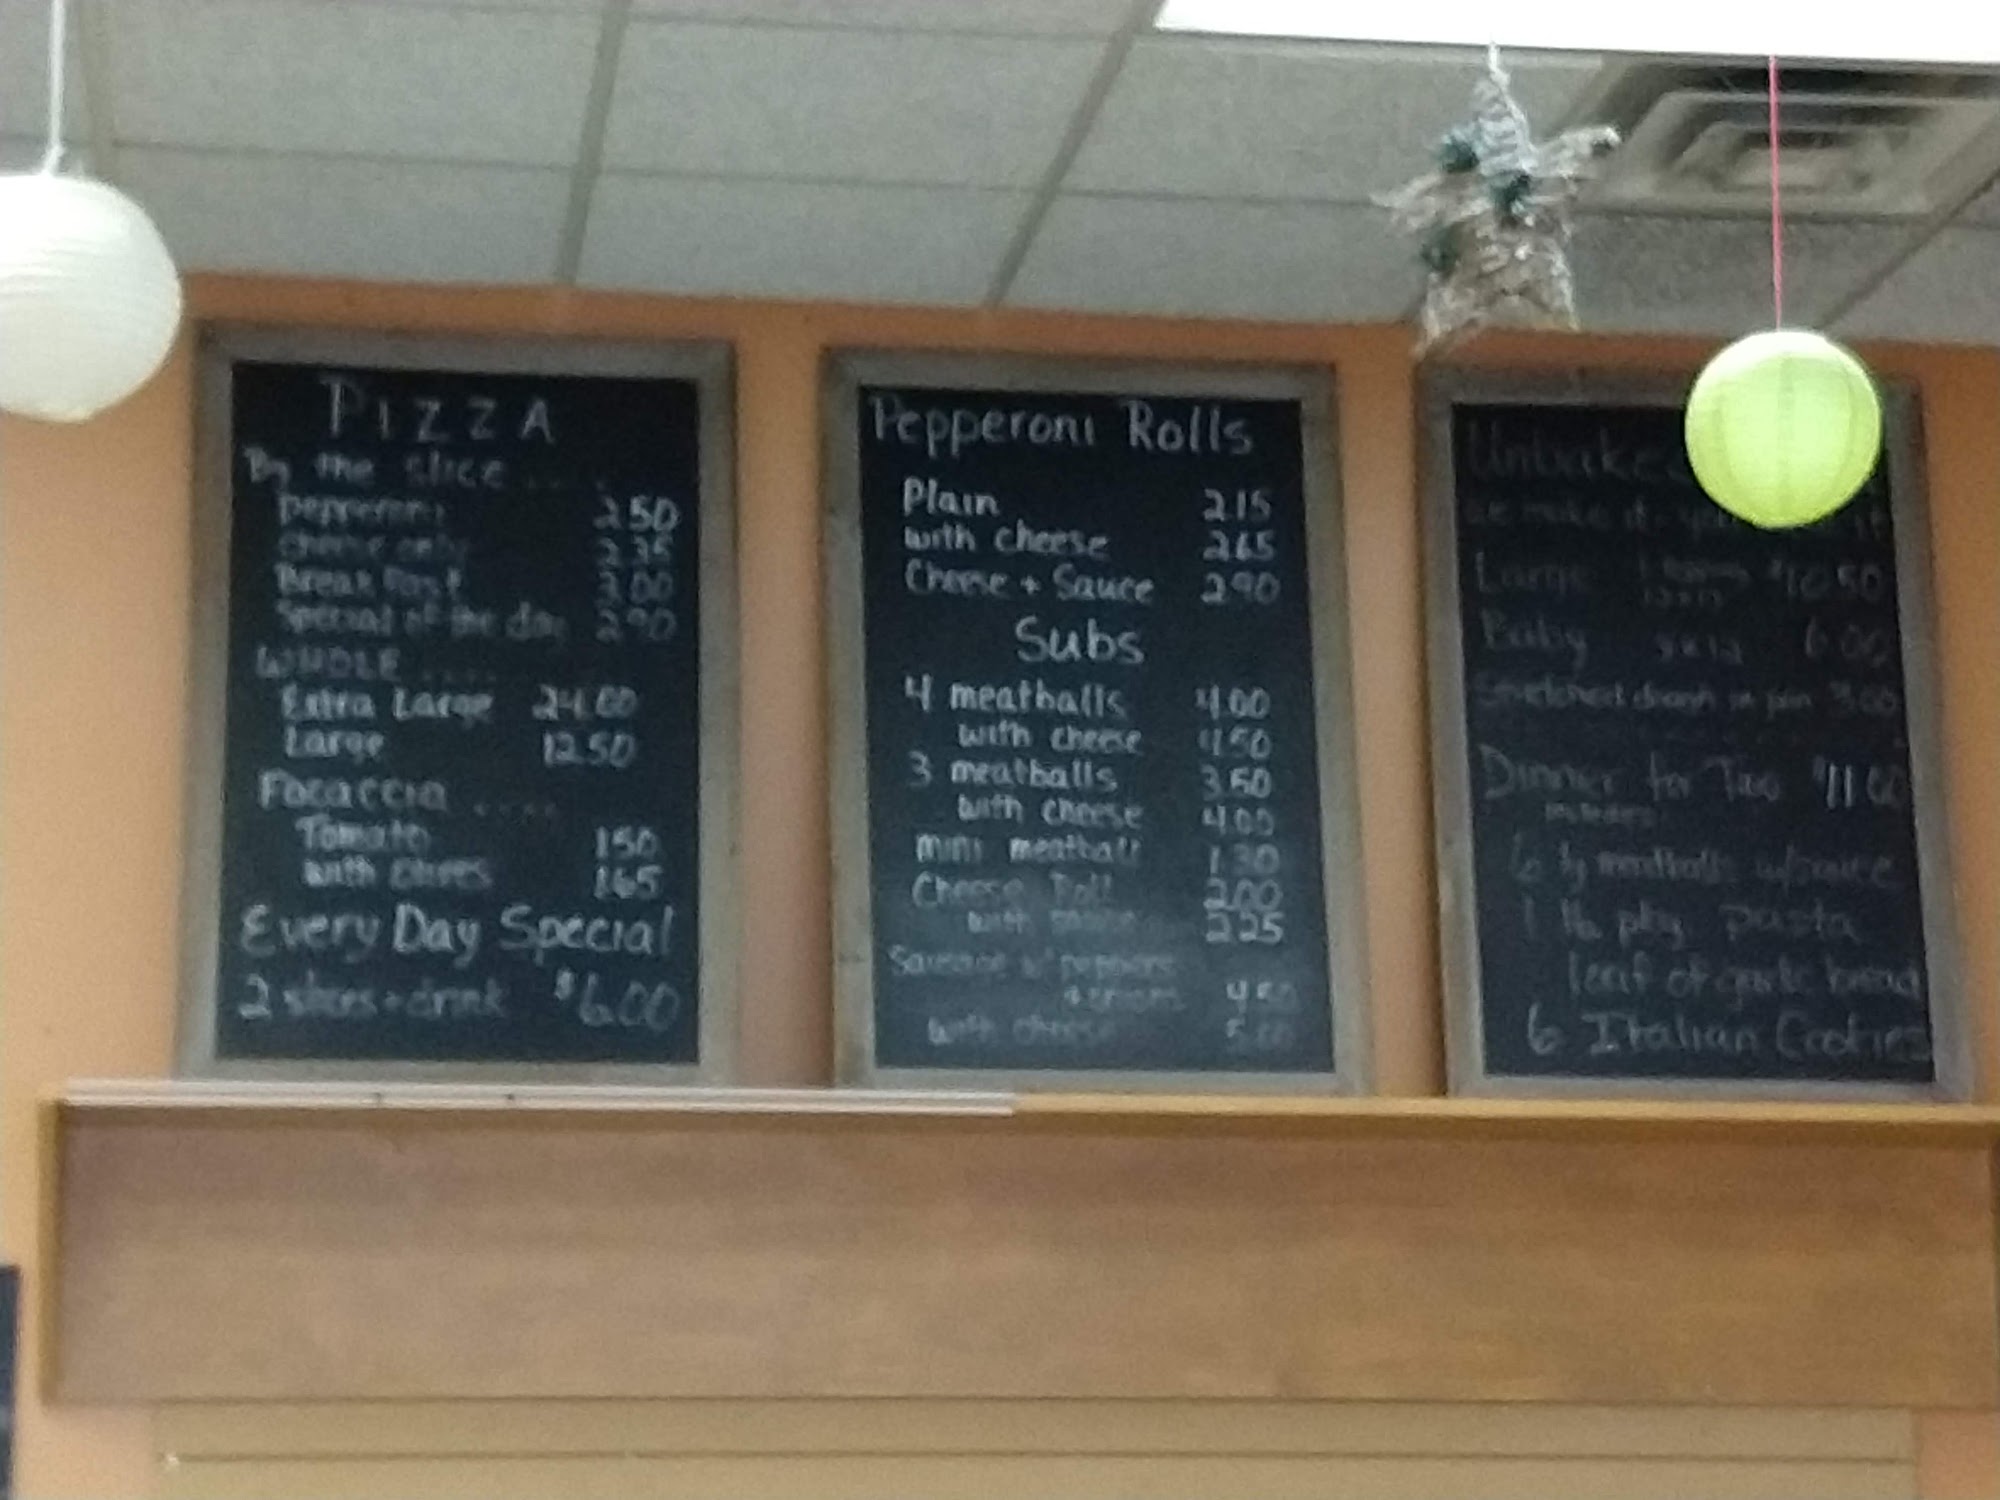 PIZZA
By the slice ....
pepperoni 2.50
cheese only 2.35
Breakfast 3.00
Special of the day 2.90
WHOLE ....
Extra Large 24.00
Large 12.50
Focaccia ....
Tomato 1.50
with olives 1.65
Every Day Special
2 slices + drink $6.00
Pepperoni Rolls
Plain 2.15
with cheese 2.65
Cheese + Sauce 2.90
Subs
4 meatballs 4.00
with cheese 4.50
3 meatballs 3.50
with cheese 4.00
mini meatball 1.30
Cheese Roll 2.00
with 2.25
Sausage w/ peppers
+ onions 4.50
with cheese 5.00
we make it
Large $10.50
Baby 9x12 6.00
Stretched dough in pan $3.00
Dinner for Two $11.00
includes
6 meatballs w/sauce
1 lb pkg pasta
loaf of garlic bread
6 Italian Cookies